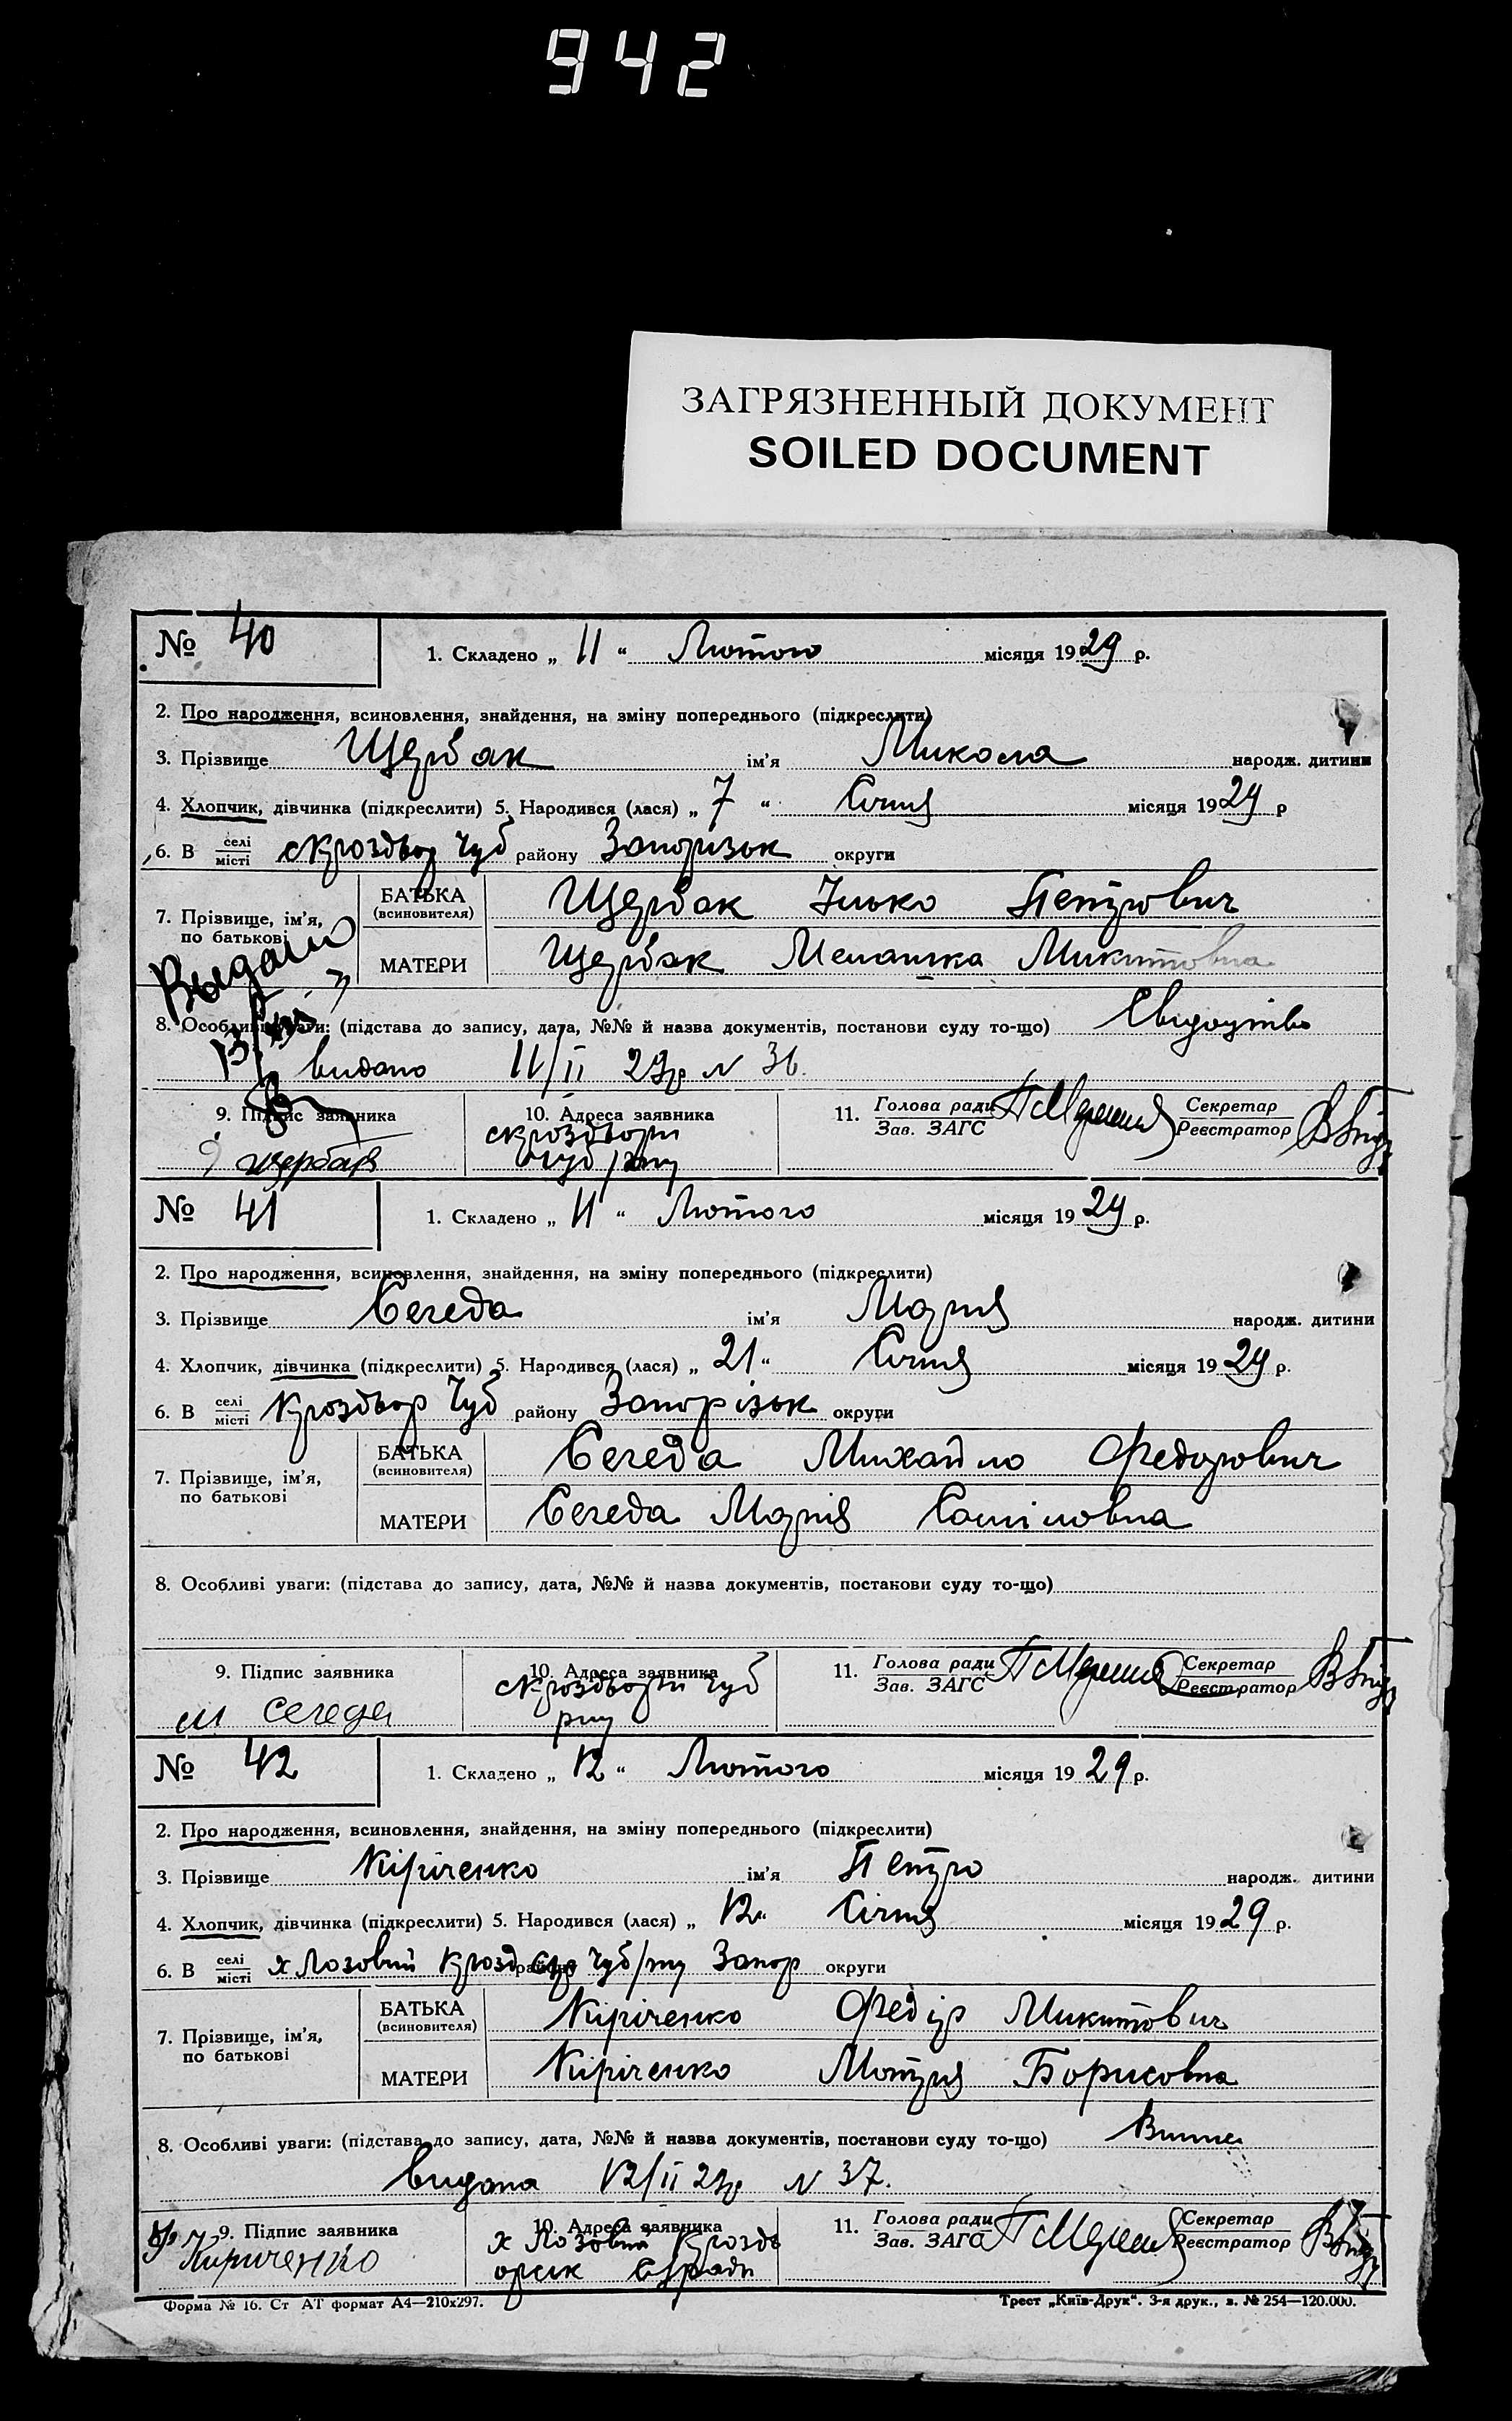 942
ЗАГРЯЗНЕННЫЙ ДОКУМЕНТ
SOILED DOCUMENT
№ 40
1. Складено „ 11 “ Лютого місяця 1929 р.
2. Про народження, всиновлення, знайдення, на зміну попереднього (підкреслити)
3. Прізвище Щербак ім'я Микола народж. дитини
4. Хлопчик, дівчинка (підкреслити) 5. Народився (лася) „ 7 “ Січня місяця 1929 р
6. В селі місті Чуб району Запорізьк округи
7. Прізвище, ім'я, по батькові
БАТЬКА (всиновителя) Щербак Ілько Петрович
МАТЕРИ Щербак Меланка Микитовна
Выдано
8. Особливі уваги: (підстава до запису, дата, №№ й назва документів, постанови суду то-що)
видано 11/II 29р N 36.
9. Підпис заявника
10. Адреса заявника
11. Голова ради Зав. ЗАГС
Секретар Реєстратор
Щербак
№ 41
1. Складено „ 11 “ Лютого місяця 1929 р.
2. Про народження, всиновлення, знайдення, на зміну попереднього (підкреслити)
3. Прізвище Сегеда ім'я Марія народж. дитини
4. Хлопчик, дівчинка (підкреслити) 5. Народився (лася) „ 21 “ Січня місяця 1929 р.
6. В селі місті Чуб району Запорізьк округи
7. Прізвище, ім'я, по батькові
БАТЬКА (всиновителя) Сегеда Михайло Федорович
МАТЕРИ Сегеда Марія
8. Особливі уваги: (підстава до запису, дата, №№ й назва документів, постанови суду то-що)
9. Підпис заявника
10. Адреса заявника
11. Голова ради Зав. ЗАГС
Секретар Реєстратор
м Сегеда
№ 42
1. Складено „ 12 “ Лютого місяця 1929 р.
2. Про народження, всиновлення, знайдення, на зміну попереднього (підкреслити)
3. Прізвище Кіріченко ім'я Петро народж. дитини
4. Хлопчик, дівчинка (підкреслити) 5. Народився (лася) „ 12 “ Січня місяця 1929 р.
6. В селі місті х Лозовий району Запор округи
7. Прізвище, ім'я, по батькові
БАТЬКА (всиновителя) Кіріченко Федір Микитович
МАТЕРИ Кіріченко Мотря Борисовна
8. Особливі уваги: (підстава до запису, дата, №№ й назва документів, постанови суду то-що)
видана 12/II 29р N 37.
9. Підпис заявника
10. Адреса заявника
11. Голова ради Зав. ЗАГС
Секретар Реєстратор
Кириченко
х Лозовий
Форма № 16. Ст АТ формат А4—210х297.
Трест „Київ-Друк“. 3-я друк., з. № 254—120.000.